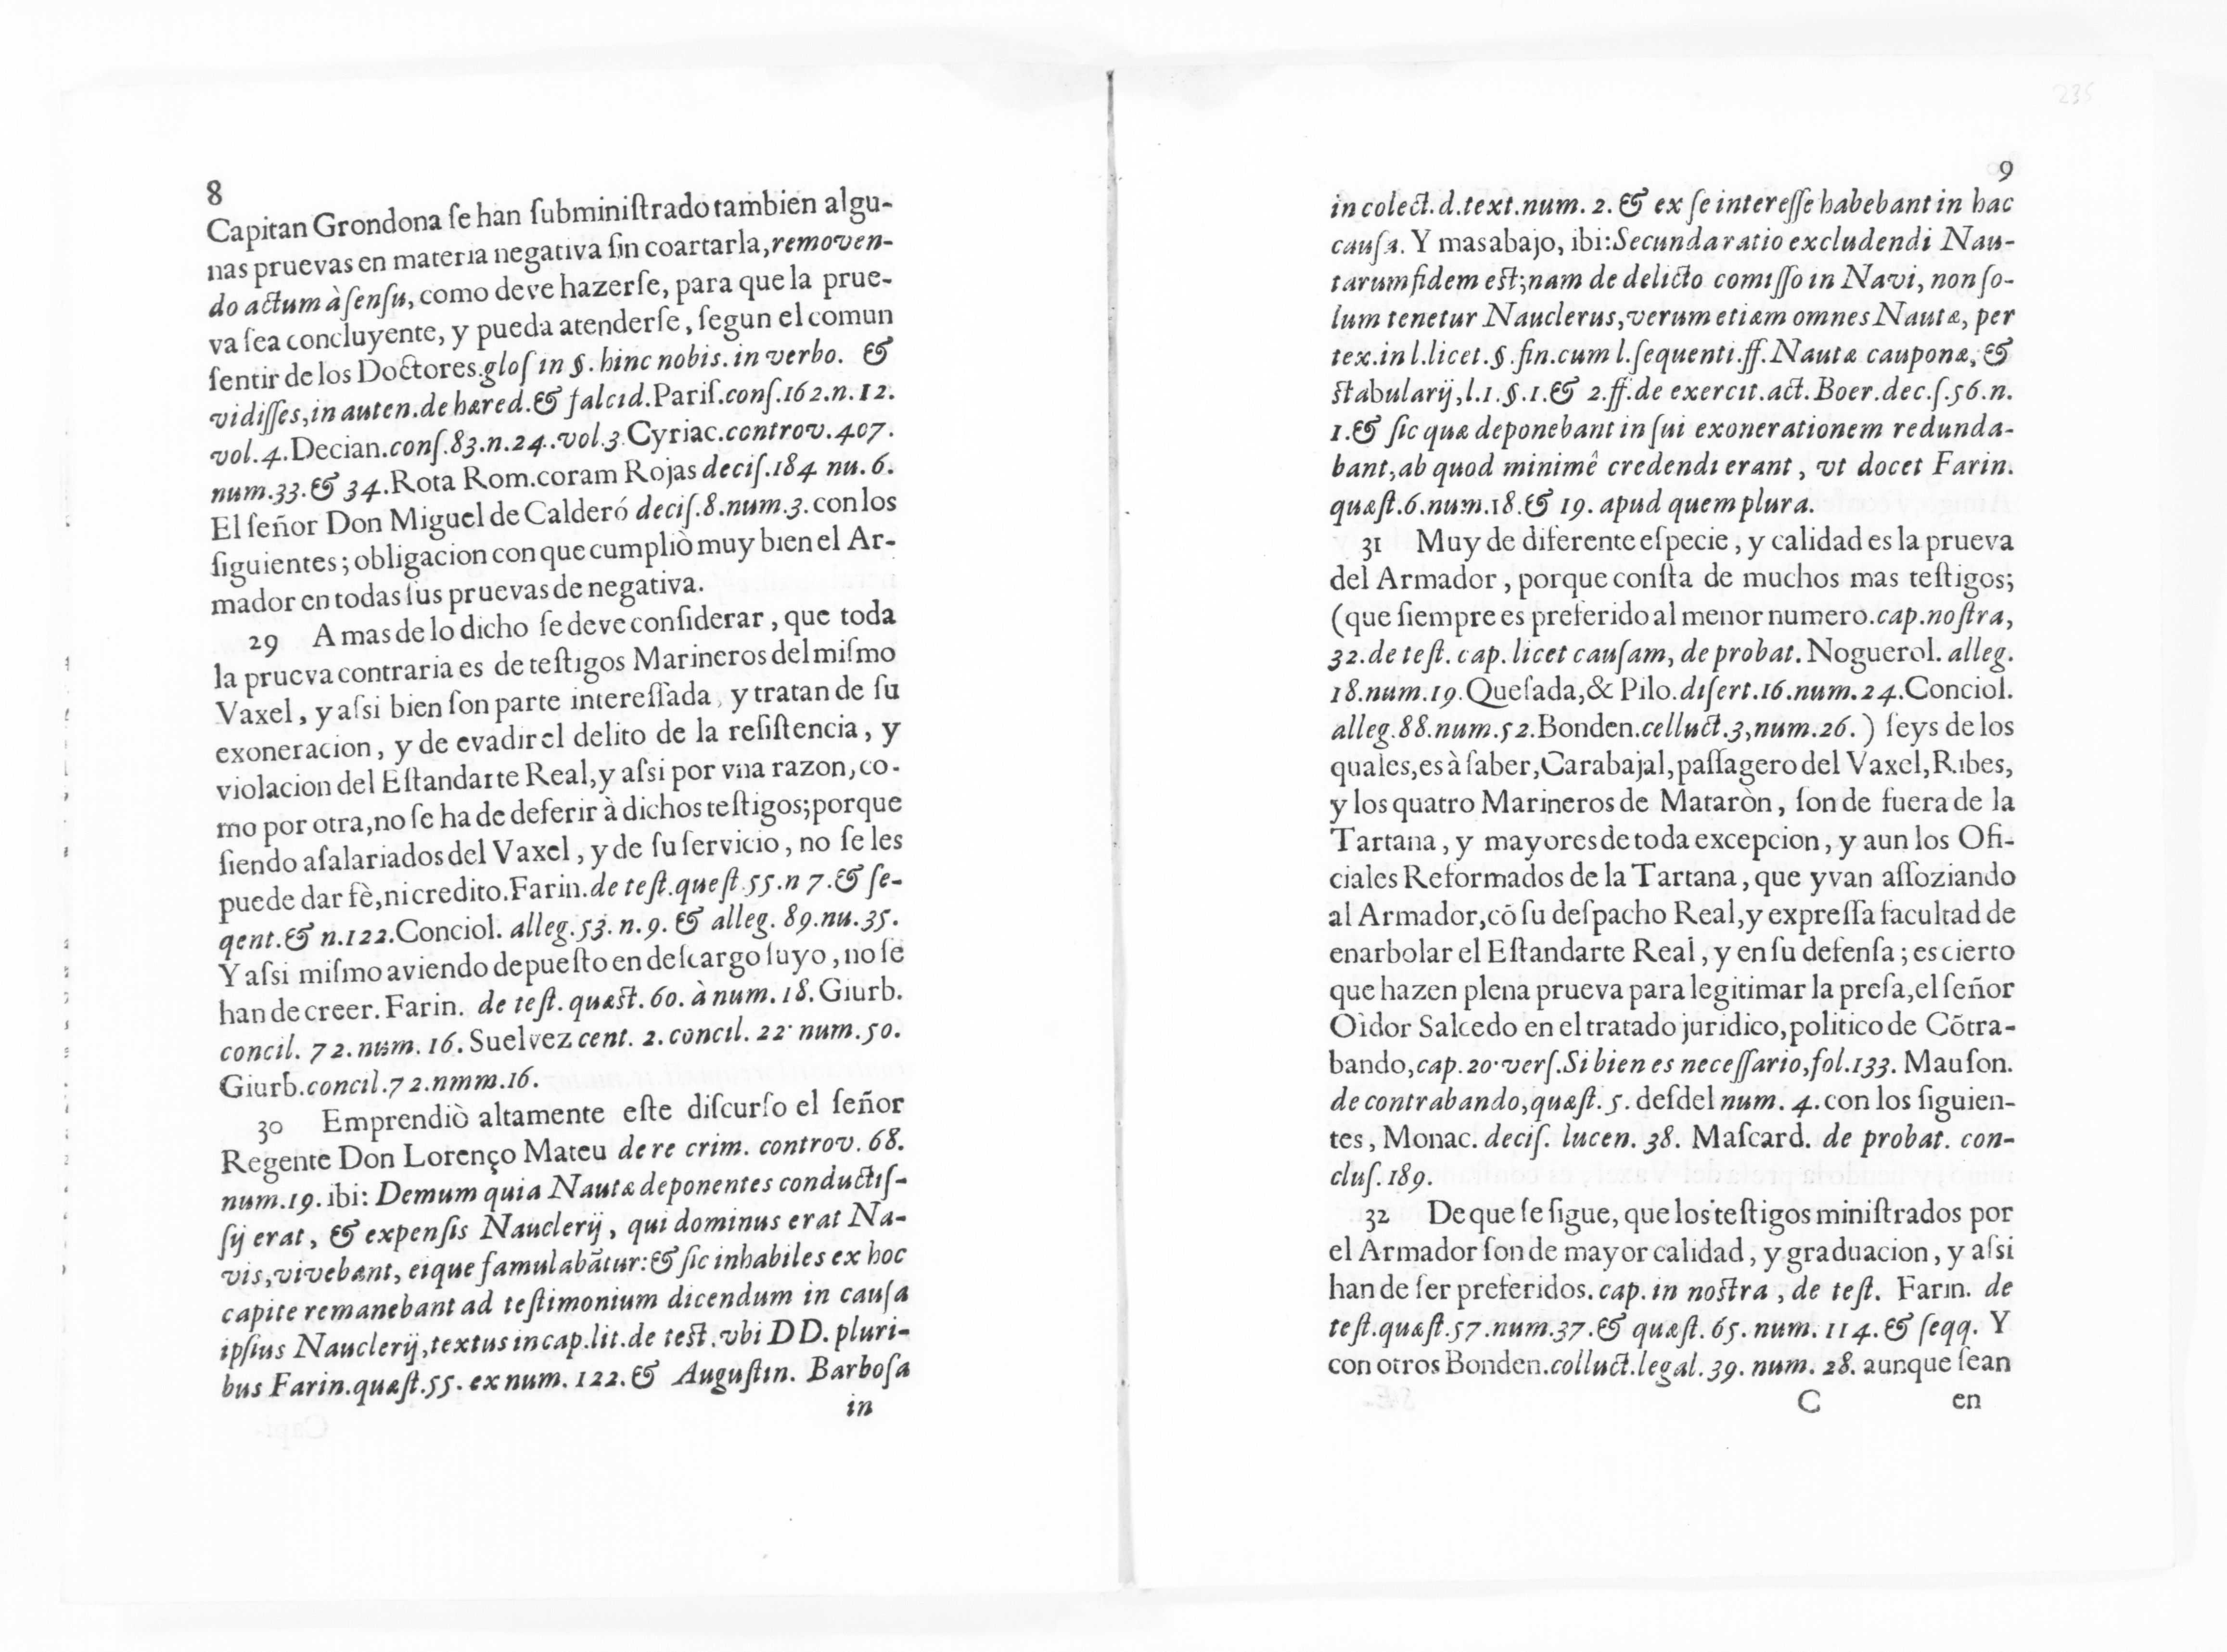 8
Capitan Grondona ſe han ſubminiſtrado tambien algu-
nas pruevas en materia negativa ſin coartarla, removen-
do actum à ſenſu, como deve hazerſe, para que la prue-
va ſea concluyente, y pueda atenderſe, ſegun el comun
ſentir de los Doctores. gloſ in §. hinc nobis. in verbo. &
vidiſſes, in auten. de hæred. & falcid. Pariſ. conſ. 162. n. 12.
vol. 4. Decian. conſ. 83. n. 24. vol. 3. Cyriac. controv. 407.
num. 33. & 34. Rota Rom. coram Rojas deciſ. 184 nu. 6.
El ſeñor Don Miguel de Calderó deciſ. 8. num. 3. con los
ſiguientes; obligacion con que cumpliò muy bien el Ar-
mador en todas ſus pruevas de negativa.
29 A mas de lo dicho ſe deve conſiderar, que toda
la prueva contraria es de teſtigos Marineros del miſmo
Vaxel, y aſsi bien ſon parte intereſſada, y tratan de ſu
exoneracion, y de evadir el delito de la reſiſtencia, y
violacion del Eſtandarte Real, y aſsi por vna razon, co-
mo por otra, no ſe ha de deferir à dichos teſtigos; porque
ſiendo aſalariados del Vaxel, y de ſu ſervicio, no ſe les
puede dar fè, ni credito. Farin. de teſt. queſt. 55. n 7. & ſe-
qent. & n. 122. Conciol. alleg. 53. n. 9. & alleg. 89. nu. 35.
Y aſsi miſmo aviendo depueſto en deſcargo ſuyo, no ſe
han de creer. Farin. de teſt. quæſt. 60. à num. 18. Giurb.
concil. 72. num. 16. Suelvez cent. 2. concil. 22. num. 50.
Giurb. concil. 72. nmm. 16.
30 Emprendiò altamente eſte diſcurſo el ſeñor
Regente Don Lorenço Mateu de re crim. controv. 68.
num. 19. ibi: Demum quia Nautæ deponentes conductiſ-
ſij erat, & expenſis Nauclerij, qui dominus erat Na-
vis, vivebant, eique famulabãtur: & ſic inhabiles ex hoc
capite remanebant ad teſtimonium dicendum in cauſa
ipſius Nauclerij, textus in cap. lit. de teſt. vbi DD. pluri-
bus Farin. quæſt. 55. ex num. 122. & Auguſtin. Barboſa
in
9
in colect. d. text. num. 2. & ex ſe intereſſe habebant in hac
cauſa. Y mas abajo, ibi: Secunda ratio excludendi Nau-
tarum fidem eſt; nam de delicto comiſſo in Navi, non ſo-
lum tenetur Nauclerus, verum etiam omnes Nautæ, per
tex. in l. licet. §. fin. cum l. ſequenti. ff. Nautæ cauponæ, &
ſtabularij, l. 1. §. 1. & 2. ff. de exercit. act. Boer. dec. ſ. 56. n.
1. & ſic quæ deponebant in ſui exonerationem redunda-
bant, ab quod minimê credendi erant, vt docet Farin.
quæſt. 6. num. 18. & 19. apud quem plura.
31 Muy de diferente eſpecie, y calidad es la prueva
del Armador, porque conſta de muchos mas teſtigos;
(que ſiempre es preferido al menor numero. cap. noſtra,
32. de teſt. cap. licet cauſam, de probat. Noguerol. alleg.
18. num. 19. Queſada, & Pilo. diſert. 16. num. 24. Conciol.
alleg. 88. num. 52. Bonden. celluct. 3, num. 26.) ſeys de los
quales, es à ſaber, Carabajal, paſſagero del Vaxel, Ribes,
y los quatro Marineros de Mataròn, ſon de fuera de la
Tartana, y mayores de toda excepcion, y aun los Ofi-
ciales Reformados de la Tartana, que yvan aſſoziando
al Armador, cõ ſu deſpacho Real, y expreſſa facultad de
enarbolar el Eſtandarte Real, y en ſu defenſa; es cierto
que hazen plena prueva para legitimar la preſa, el ſeñor
Oìdor Salcedo en el tratado juridico, politico de Cõtra-
bando, cap. 20. verſ. Si bien es neceſſario, fol. 133. Mauſon.
de contrabando, quæſt. 5. deſdel num. 4. con los ſiguien-
tes, Monac. deciſ. lucen. 38. Maſcard. de probat. con-
cluſ. 189.
32 De que ſe ſigue, que los teſtigos miniſtrados por
el Armador ſon de mayor calidad, y graduacion, y aſsi
han de ſer preferidos. cap. in noſtra, de teſt. Farin. de
teſt. quæſt. 57. num. 37. & quæſt. 65. num. 114. & ſeqq. Y
con otros Bonden. colluct. legal. 39. num. 28. aunque ſean
C en